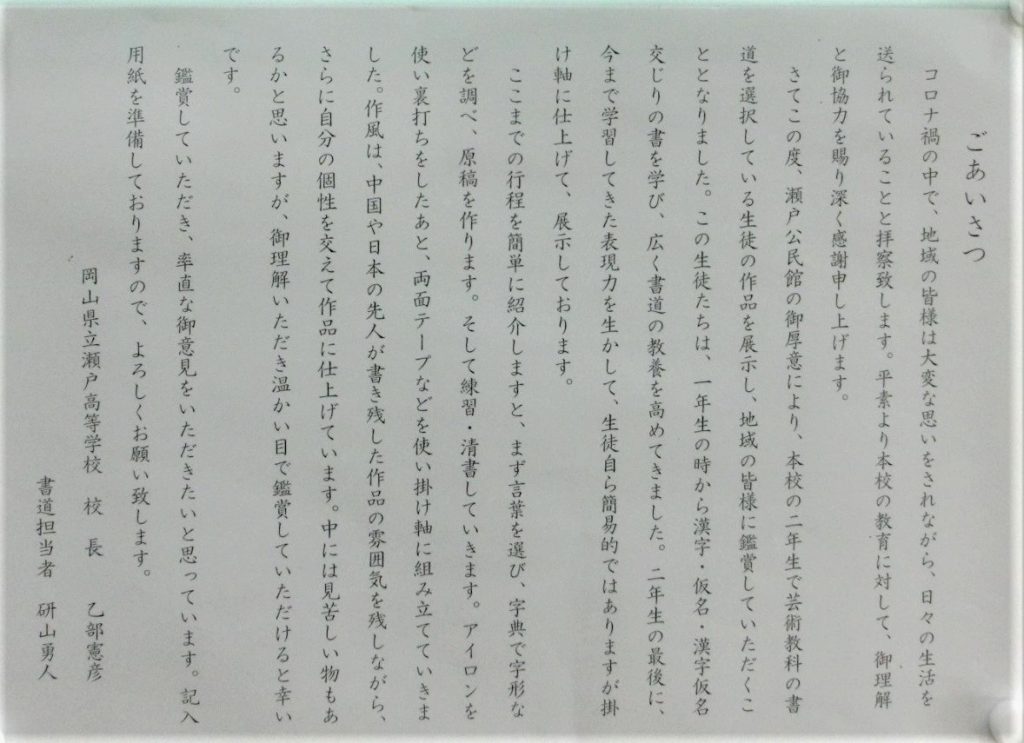 ごあいさつ
コロナ禍の中で、地域の皆様は大変な思いをされながら、日々の生活を
送られていることと拝察致します。平素より本校の教育に対して、御理解
と御協力を賜り深く感謝申し上げます。
さてこの度、瀬戸公民館の御厚意により、本校の二年生で芸術教科の書
道を選択している生徒の作品を展示し、地域の皆様に鑑賞していただくこ
ととなりました。この生徒たちは、一年生の時から漢字・仮名・漢字仮名
交じりの書を学び、広く書道の教養を高めてきました。二年生の最後に、
今まで学習してきた表現力を生かして、生徒自ら簡易的ではありますが掛
け軸に仕上げて、展示しております。
ここまでの行程を簡単に紹介しますと、まず言葉を選び、字典で字形な
どを調べ、原稿を作ります。そして練習・清書していきます。アイロンを
使い裏打ちをしたあと、両面テープなどを使い掛け軸に組み立てていきま
した。作風は、中国や日本の先人が書き残した作品の雰囲気を残しながら、
さらに自分の個性を交えて作品に仕上げています。中には見苦しい物もあ
るかと思いますが、御理解いただき温かい目で鑑賞していただけると幸い
です。
鑑賞していただき、率直な御意見をいただきたいと思っています。記入
用紙を準備しておりますので、よろしくお願い致します。
岡山県立瀬戸高等学校 校 長 乙部憲彦
書道担当者 研山勇人